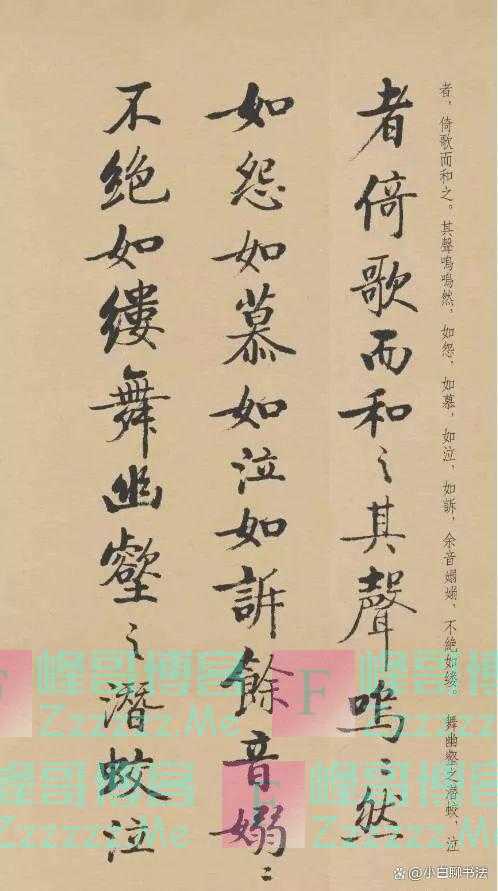 者，倚歌而和之。其聲嗚嗚然，如怨，如慕，如泣，如訴，余音嫋嫋，不絕如缕。舞幽壑之潛蛟，泣
者倚歌而和之其聲嗚〻然
如怨如慕如泣如訴餘音嫋〻
不絕如縷舞幽壑之潛蛟泣
F 峰哥博客
Zzzzzz.Me
F 峰哥博客
Zzzzzz.Me
F 峰哥博客
Zzzzzz.Me
F 峰哥博客
Zzzzzz.Me
@小白聊书法